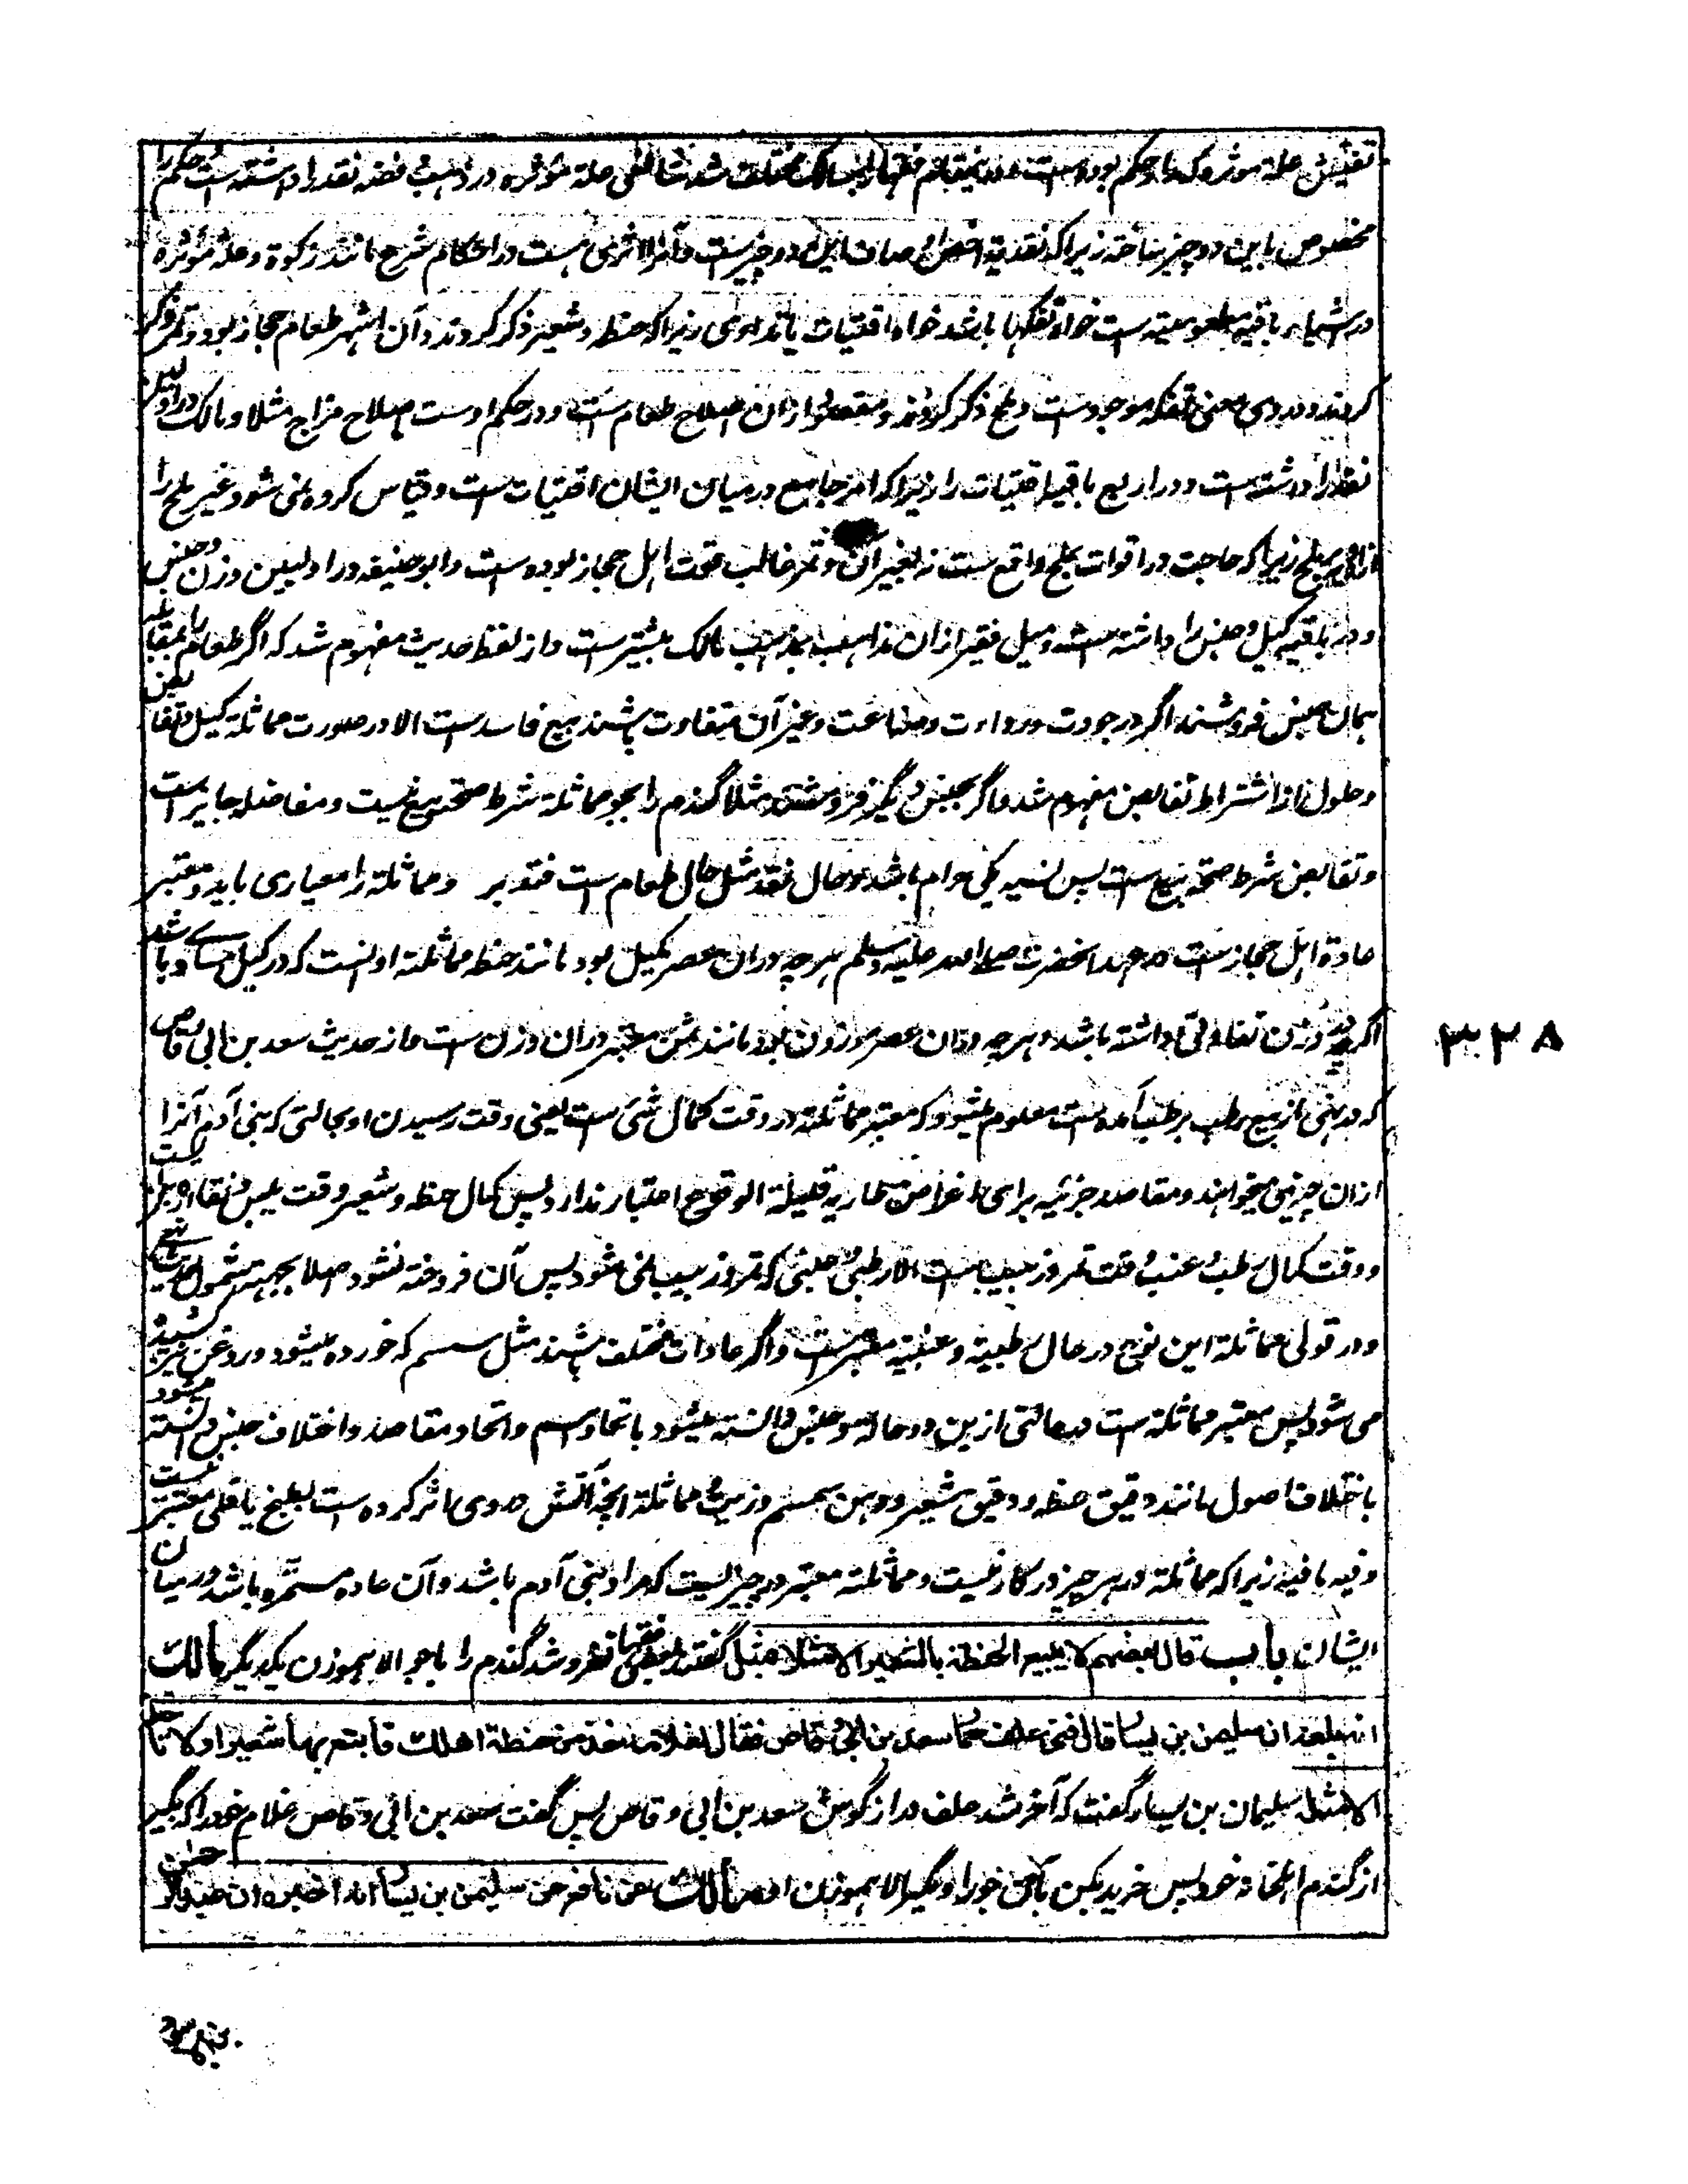 تفتیش علة موثره که مدار حکم بوده است و درینمقام فقها را مسالک مختلف شد شافعی علة مؤثره در ذهب و فضه نقد را داشته است و حکم را
مخصوص باین دو چیز ساخته زیرا که نقدیة اخص اوصاف این دو چیزست و آنرا اثری هست در احکام شرع مانند زکوة و علة مؤثره
در اشیاء باقیه مطعومیة است خواه تفکها باشد خواه اقتیات یا تداوی زیرا که حنطه و شعیر ذکر کردند و آن اشهر طعام حجاز بود و تمر ذکر
کردند و در وی معنی تفکه موجودست و ملح ذکر کردند و مقصود ازان اصلاح طعام ست و در حکم اوست اصلاح مزاج مثلا و مالک در اولین
نقد را داشته است و در اربع باقیه اقتیات را زیرا که امر جامع درمیان ایشان اقتیات ست و قیاس کرده نمی شود غیر ملح را
بملح زیرا که حاجت در اقوات بملح واقع ست نه بغیر آن و تمر غالب قوت اهل حجاز بوده ست و ابو حنیفه در اولیین وزن و جنس
و در بقیه کیل و جنس را داشته است و میل فقیر ازان مذاهب بمذهب مالک بیشتر است و از لفظ حدیث مفهوم شد که اگر طعام را بمقابله
همان جنس فروشند اگر در جودت و رداءت و صناعت و غیر آن متفاوت باشند بیع فاسد ست الا در صورت مماثلة کیل و تقابض
و حلول از اشتراط تقابض مفهوم شد و اگر بجنس دیگر فروشند مثلا گندم را بجو مماثلة شرط صحة بیع نیست و مفاضله جایز است
و تقابض شرط صحة بیع ست پس نسیه یکی حرام باشد و حال نقد مثل حال طعام است فتدبر و مماثلة را معیاری باید و معتبر
عادة اهل حجاز ست در عهد آنحضرت صلی الله علیه وسلم هر چه دران عصر مکیل بود مانند حنطه مماثلته اونست که در کیل مساوی باشد
اگرچه در وزن تفاوتی داشته باشد و هر چه دران عصر موزون بود مانند ثمن معتبر دران وزن ست و از حدیث سعد بن ابی وقاص
که در نهی از بیع رطب برطب آمده است معلوم میشود که معتبر مماثلة در وقت کمال شئ ست یعنی وقت رسیدن او بحالتی که بنی آدم آنرا
ازان چیز می خواهند و مقاصد جزئیه برای اغراض طاریه قلیلة الوقوع اعتبار ندارد پس کمال حنطه و شعیر وقت یبس و نقاء او
و وقت کمال رطب و عنب وقت تمر و زبیب است الا رطبی و عنبی که تمر و زبیب نمی شود پس آن فروخته نشود اصلا بجهة شمول حدیث
و در قولی مماثلة این نوع در حال رطبیة و عنبیة معتبرست و اگر عادات مختلف باشند مثل سمسم که خورده میشود و روغن نیز کشیده
می شود پس معتبر مماثلة ست در حالتی ازین دو حاله و جنس دانسته میشود باتحاد اسم و اتحاد مقاصد و اختلاف جنس دانسته میشود
باختلاف اصول مانند دقیق حنطه و دقیق شعیر و دهن سمسم و زیت و مماثلة آنچه آتش در وی اثر کرده ست بطبخ یا قلی معتبر نیست
و فیه ما فیه زیرا که مماثلة در هر چیز در کار نیست و مماثلته معتبر در چیزیست که مراد بنی آدم باشد و آن عاده مستمره باشد درمیان
ایشان باب قال بعضهم لا یبیع الحنطة بالشعیر الا مثلا بمثل گفتند بعض فقها نفروشد گندم را با جو الا هموزن یکدیگر مالک
انه بلغه ان سلیمن بن یسار قال فنی علف حمار سعد بن ابی وقاص فقال لغلامه خذ من حنطة اهلك فابتع بها شعیرا و لا تأخذ
الا مثله سلیمان بن یسار گفت که آخر شد علف دراز گوش سعد بن ابی وقاص پس گفت سعد بن ابی وقاص غلام خود را که بگیر
از گندم اهلخانه خود پس خرید بکن بآن جو را و مگیر الا هموزن او مالک عن نافع عن سلیمن بن یسار انه اخبره ان عبدالرحمن
۳۲۸